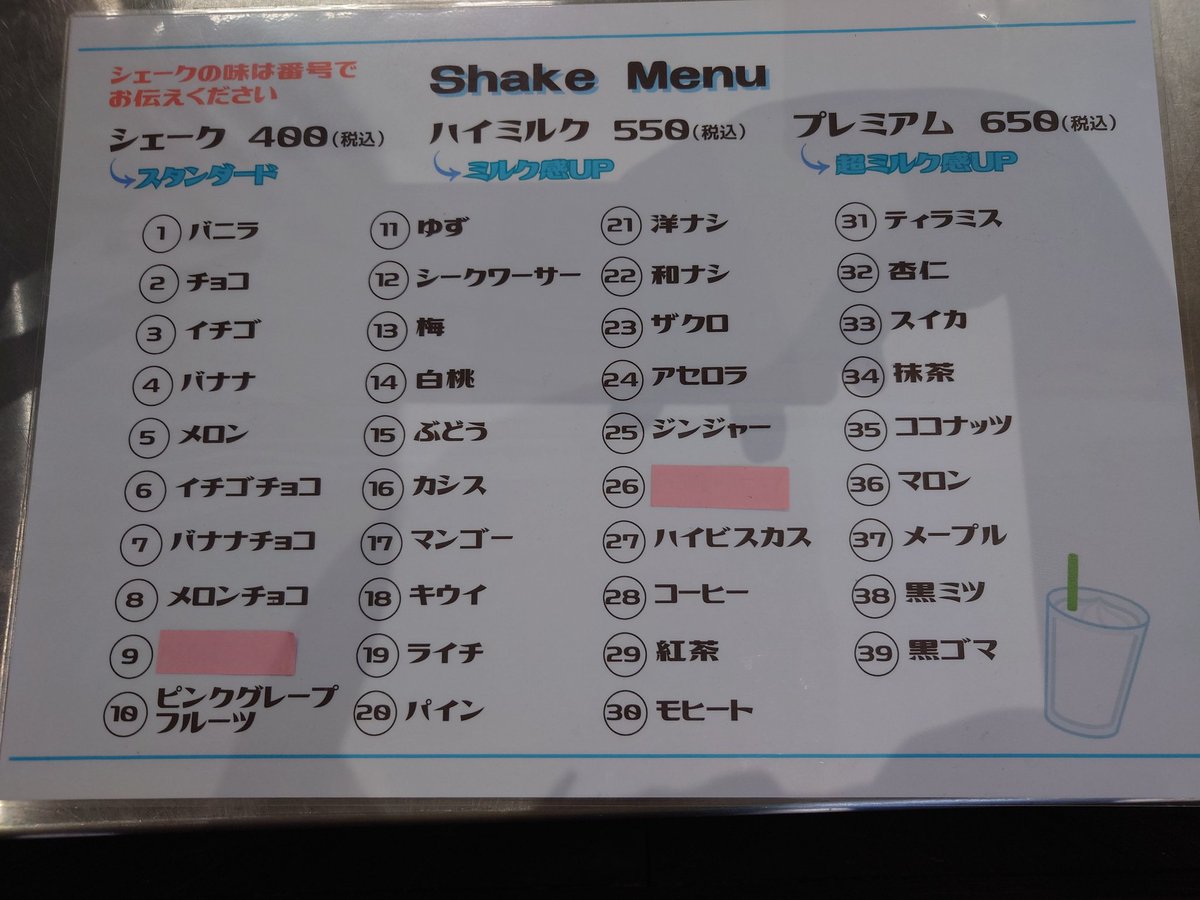 シェークの味は番号で
お伝えください
Shake Menu
シェーク 400(税込)
スタンダード
ハイミルク 550(税込)
ミルク感UP
プレミアム 650(税込)
超ミルク感UP
① バニラ
② チョコ
③ イチゴ
④ バナナ
⑤ メロン
⑥ イチゴチョコ
⑦ バナナチョコ
⑧ メロンチョコ
⑨
⑩ ピンクグレープ
フルーツ
⑪ ゆず
⑫ シークワーサー
⑬ 梅
⑭ 白桃
⑮ ぶどう
⑯ カシス
⑰ マンゴー
⑱ キウイ
⑲ ライチ
⑳ パイン
㉑ 洋ナシ
㉒ 和ナシ
㉓ ザクロ
㉔ アセロラ
㉕ ジンジャー
㉖
㉗ ハイビスカス
㉘ コーヒー
㉙ 紅茶
㉚ モヒート
㉛ ティラミス
㉜ 杏仁
㉝ スイカ
㉞ 抹茶
㉟ ココナッツ
㊱ マロン
㊲ メープル
㊳ 黒ミツ
㊴ 黒ゴマ